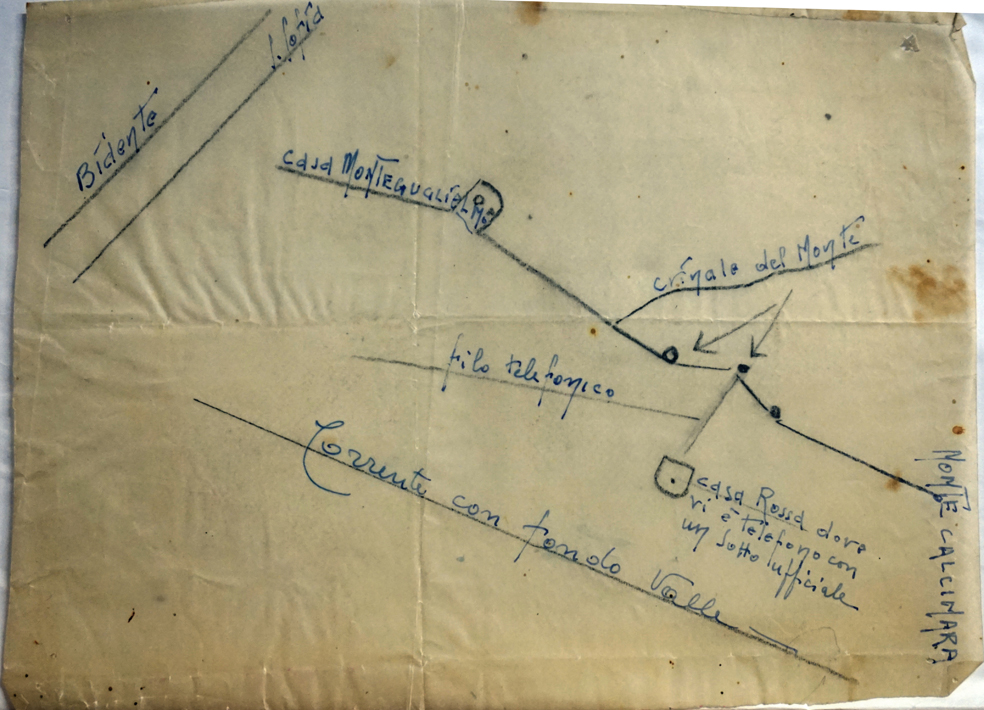 S. Sofia
Bidente
casa MONTEGUGLIELMO
crinale del Monte
filo telefonico
Torrente con fondo Valle
casa Rossa dove
vi è telefono con
un sotto ufficiale
MONTE CALCINARA